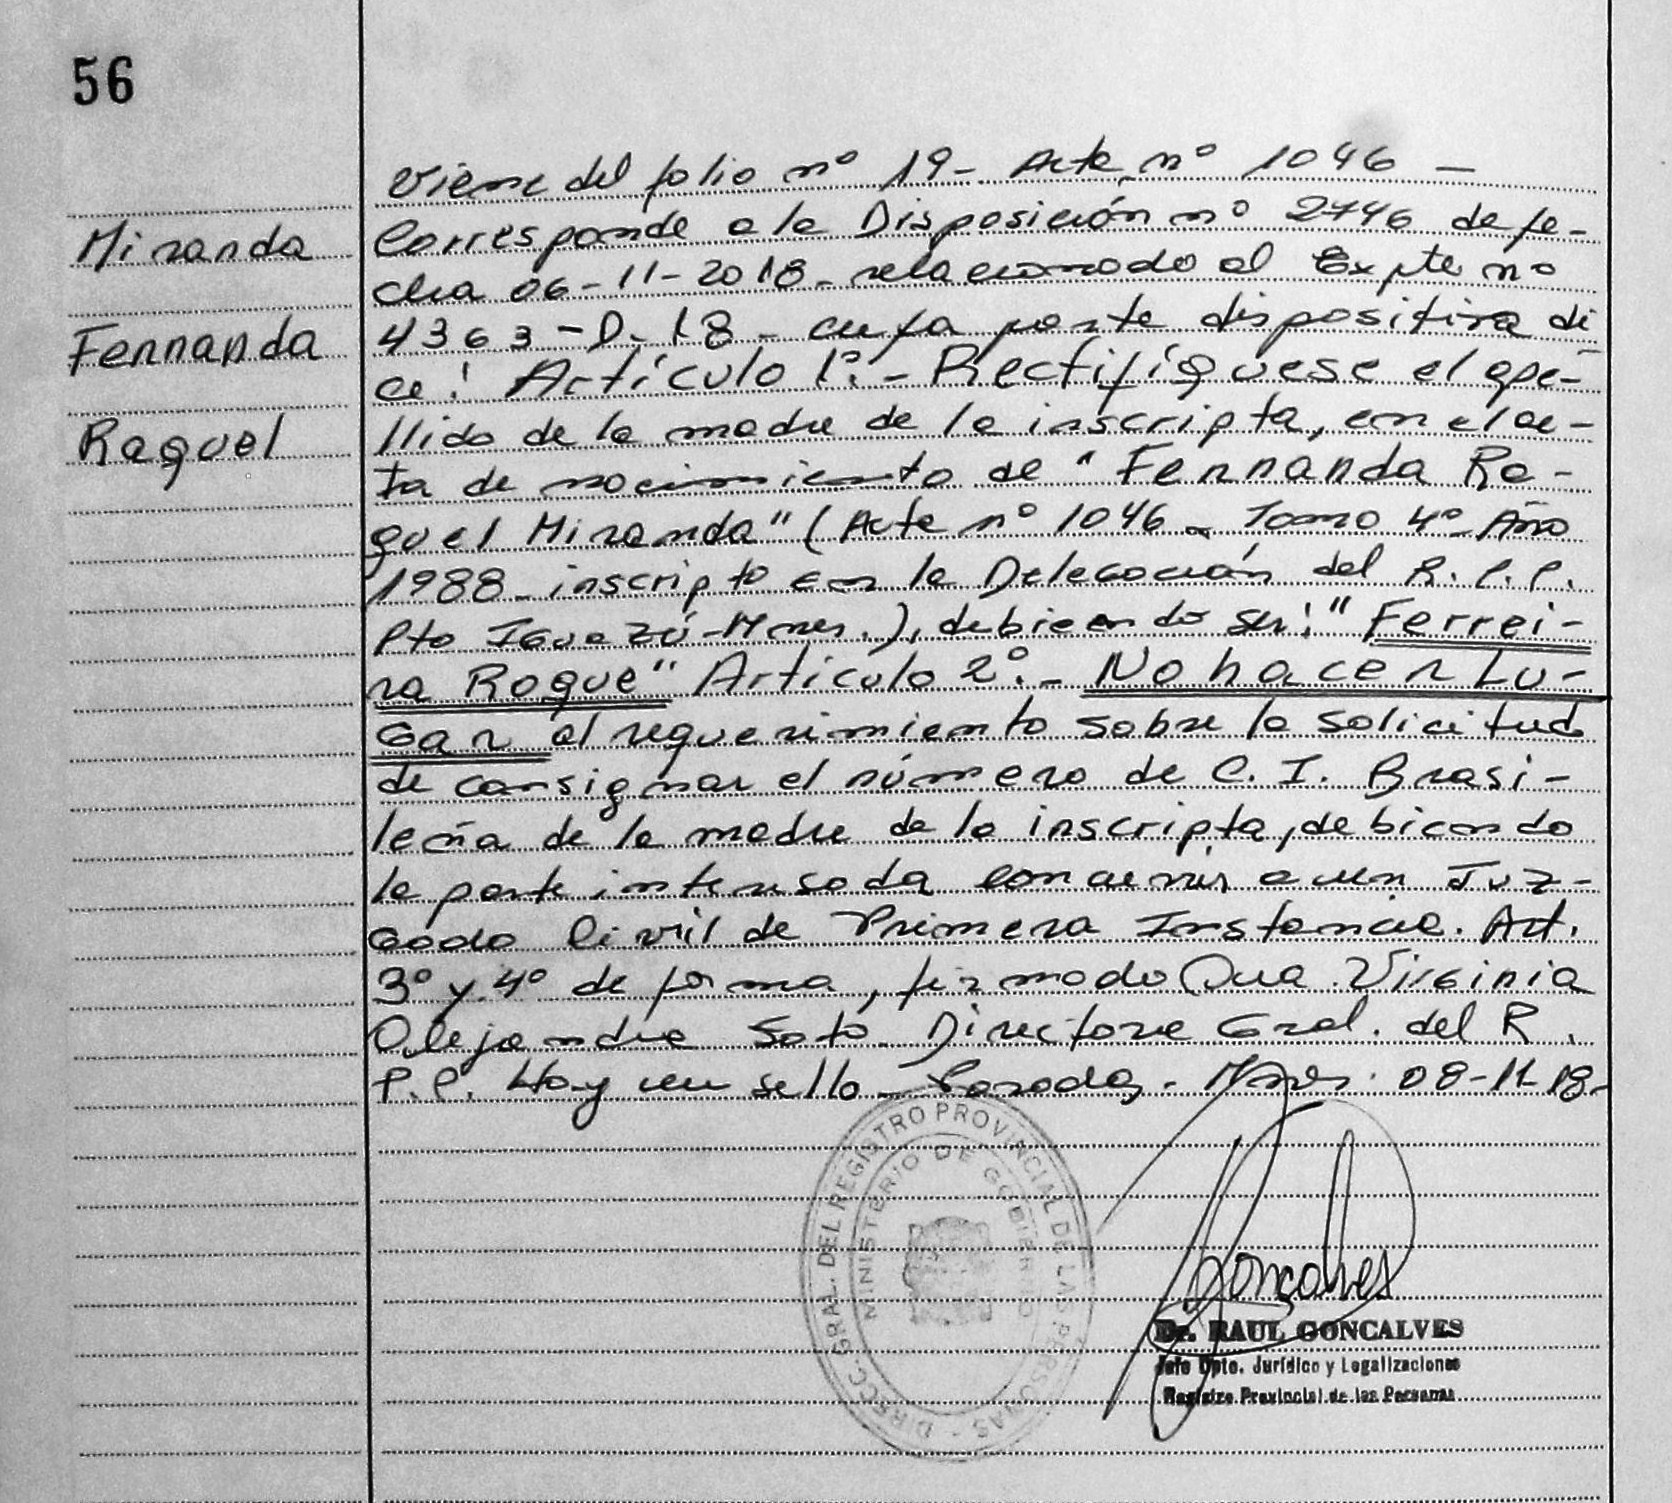 56
Viene del folio nº 19- Acta nº 1046 -
Miranda
Corresponde a la Disposición nº 2746 de fe-
cha 06-11-2018- relacionado al Expte nº
Fernanda
4363-D-18- cuya parte dispositiva di
ce: Artículo 1º:- Rectifíquese el ape-
Raquel
llido de la madre de la inscripta, en el ac-
ta de nacimiento de "Fernanda Ra-
quel Miranda" (Acta nº 1046- Tomo 4º- Año
1988- inscripto en la Delegación del R.P.P.
Pto Iguazú-Mnes.), debiendo ser: "Ferrei-
ra Roque" Artículo 2º.- No hacer Lu-
gar al requerimiento sobre la solicitud
de consignar el número de C.I. Brasi-
leña de la madre de la inscripta, debiendo
la parte interesada concurrir a un Juz-
gado Civil de Primera Instancia. Art.
3º y 4º de forma, firmado Dra Virginia
Alejandra Soto- Directora Gral. del R.
P.P. Hay un sello- Posadas- Mnes. 08-11-18-
DIRECC. GRAL. DEL REGISTRO PROVINCIAL DE LAS PERSONAS -
MINISTERIO DE GOBIERNO
Gonçalves
Dr. RAUL GONCALVES
Jefe Dpto. Jurídico y Legalizaciones
Registro Provincial de las Personas